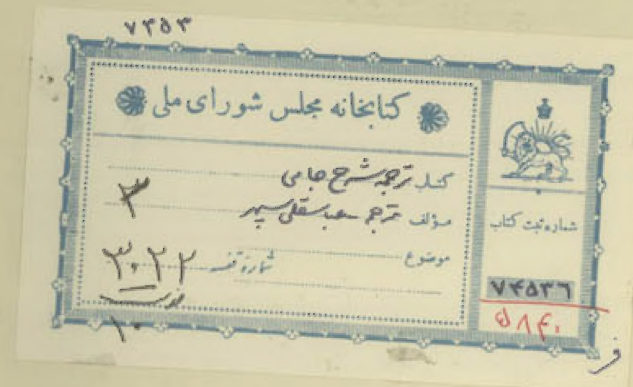 ۷۴۵۳
کتابخانه مجلس شورای ملی
کتاب ترجمه شرح جامی
مؤلف ترجمه عباسقلی سپهر
۳
موضوع
شماره قفسه ۳۰۲۲
۱۰
شماره ثبت کتاب
۷۴۵۳۶